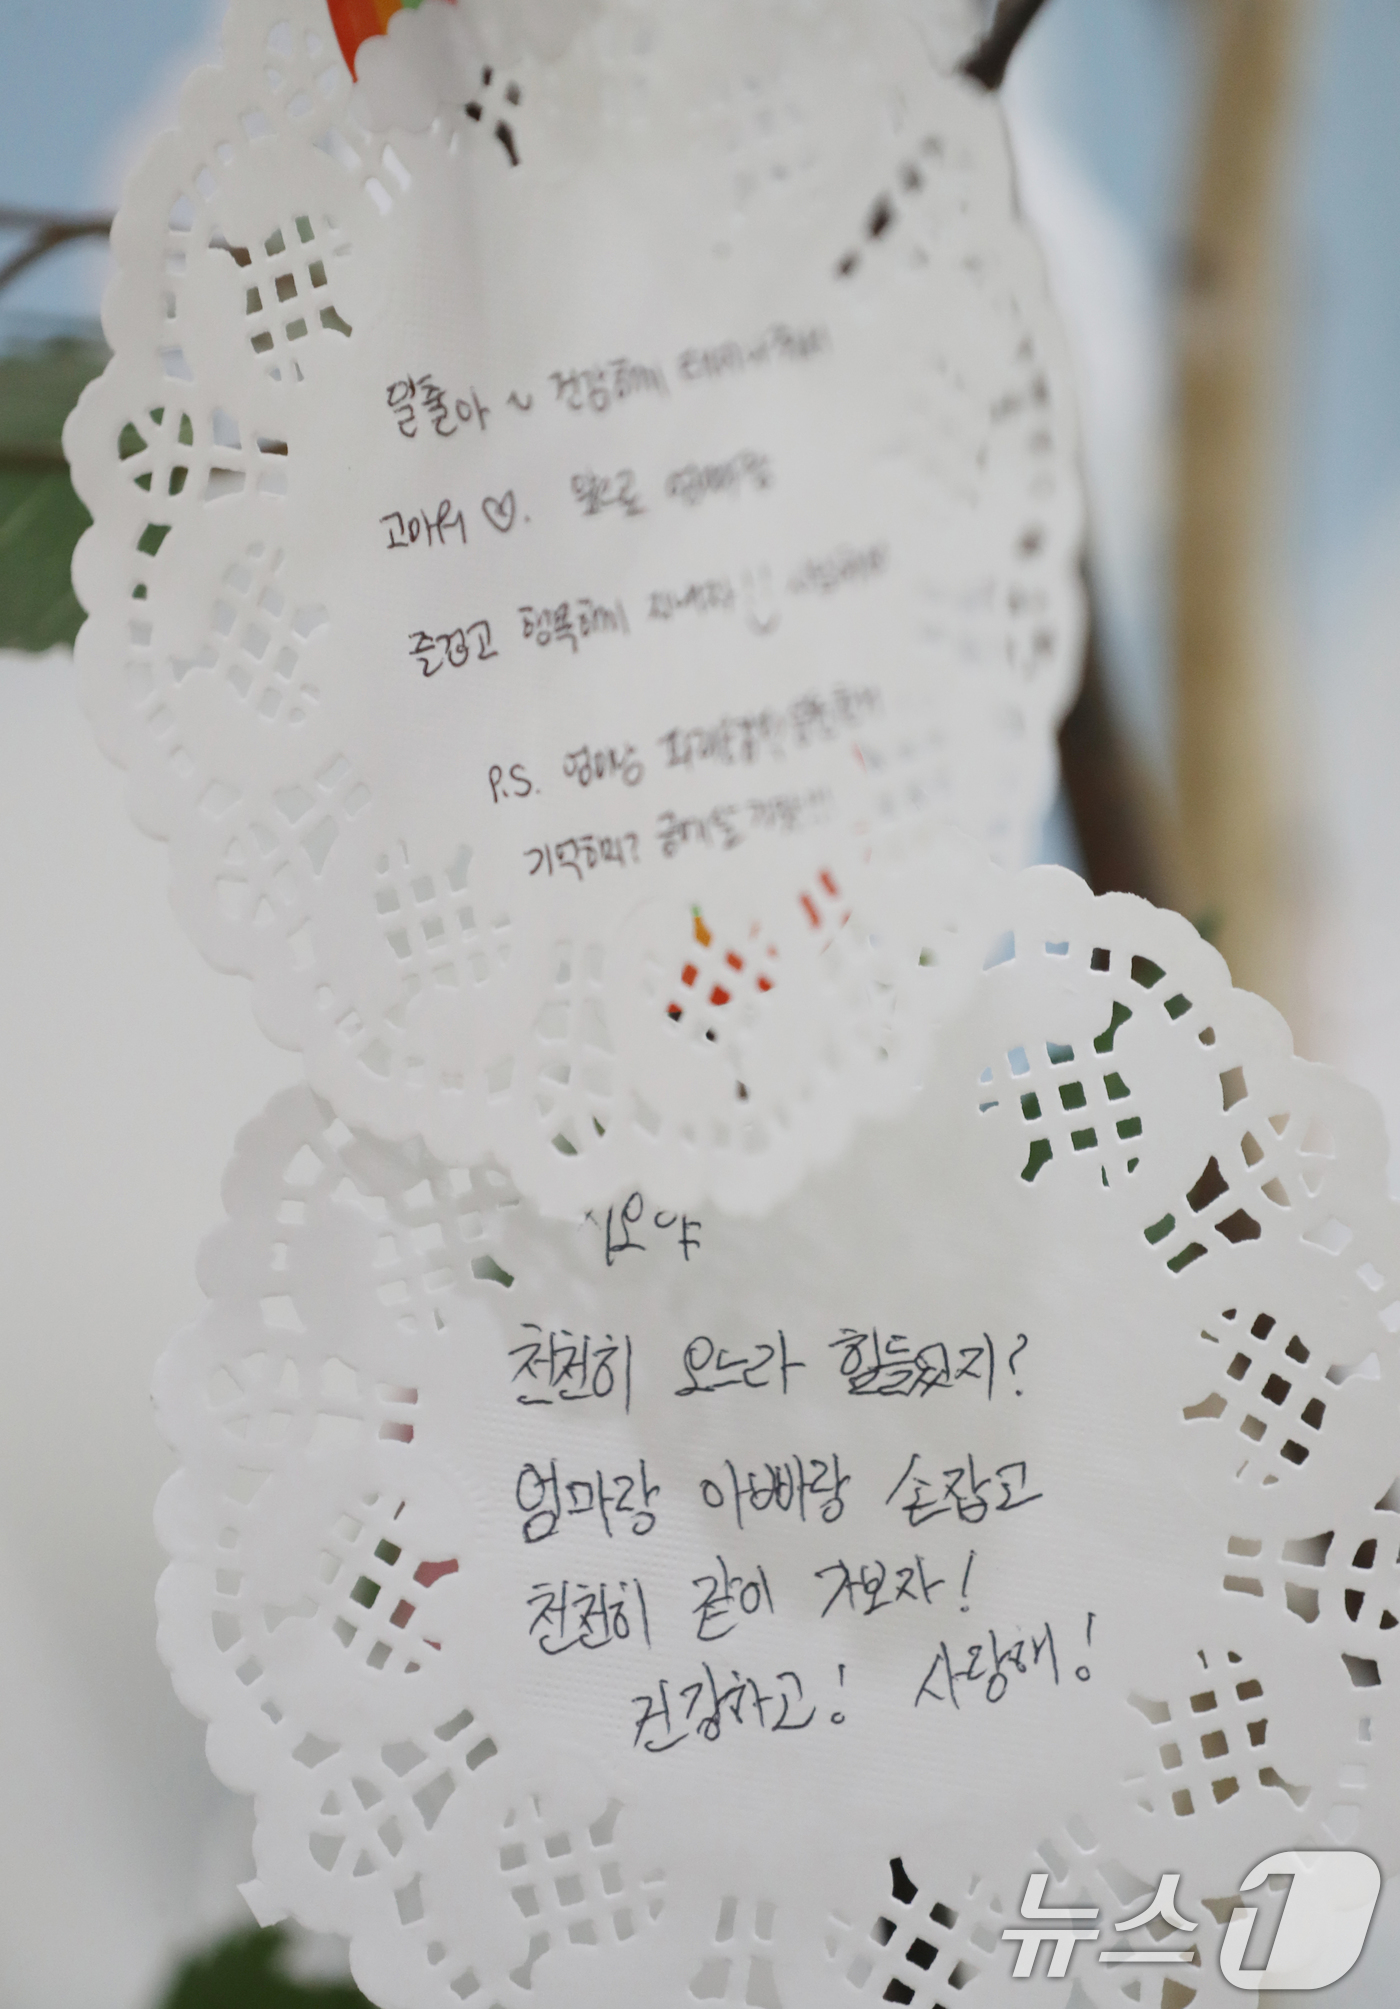 말줄아 ~ 건강하게 태어나줘서
고마워 ♡. 앞으로 엄빠랑
즐겁고 행복하게 지내자 사랑해
P.S. 엄마랑
기억해?
시오야
천천히 오느라 힘들었지?
엄마랑 아빠랑 손잡고
천천히 같이 가보자!
건강하고! 사랑해!
뉴스1